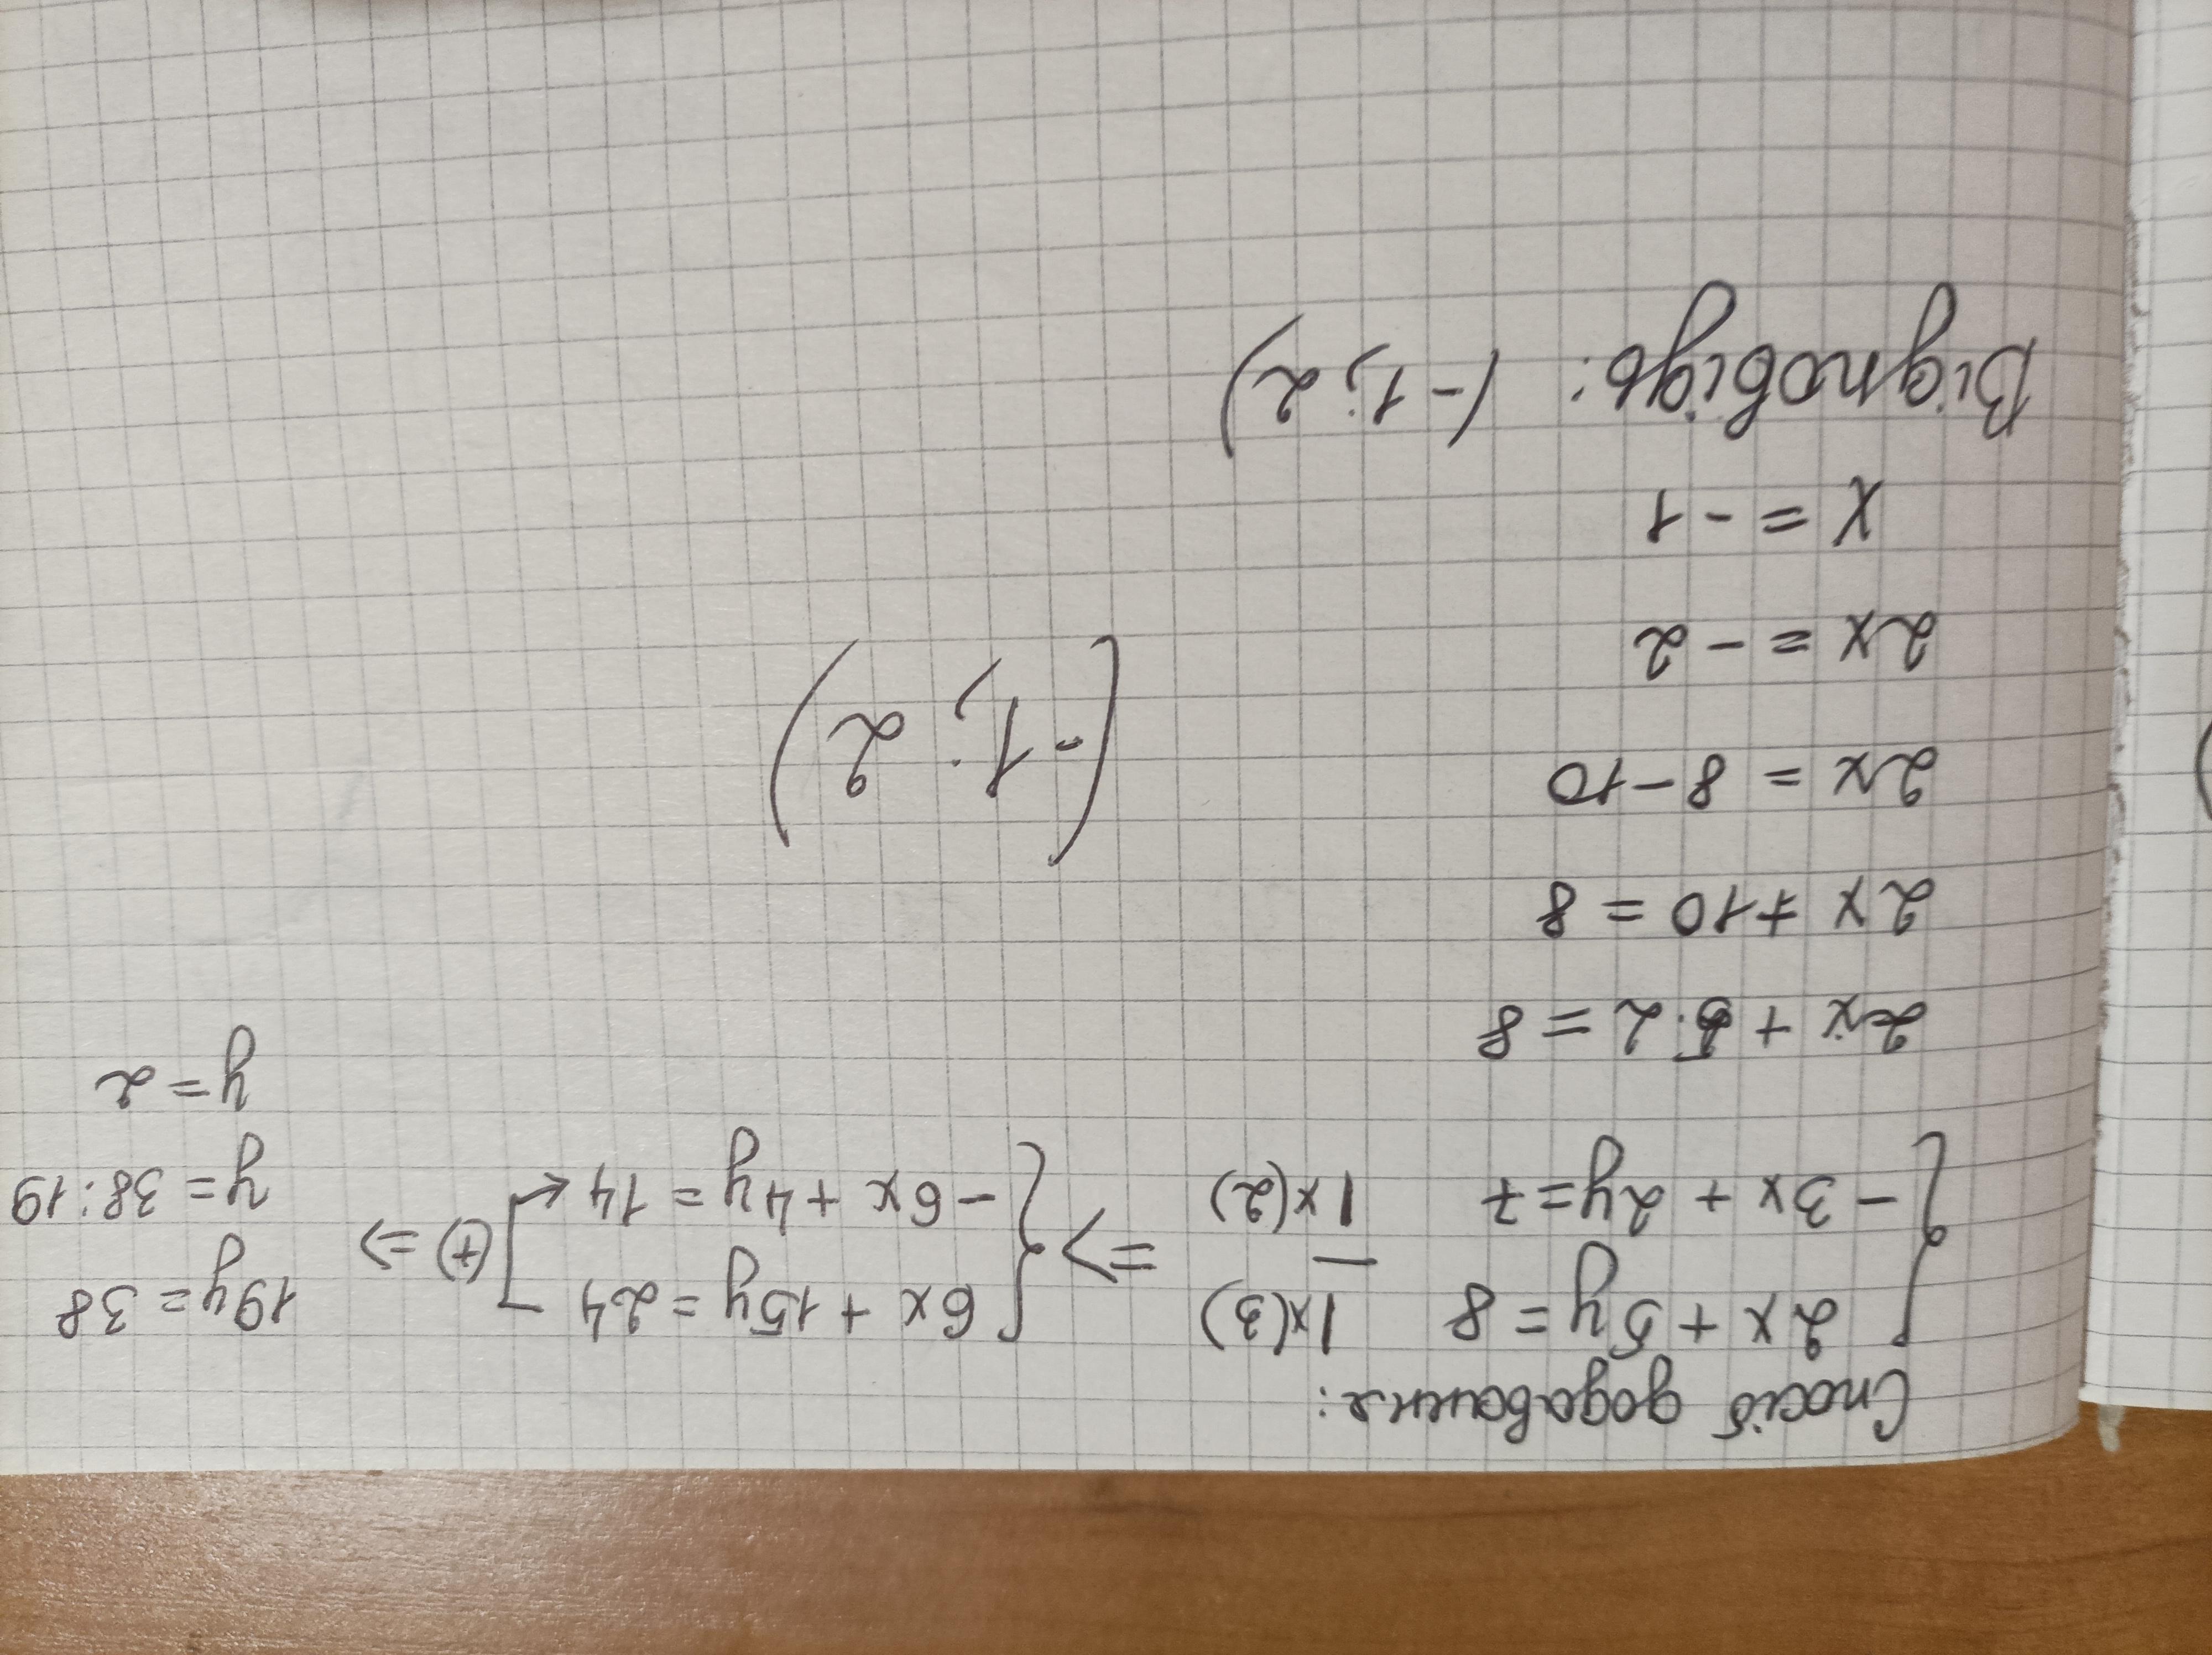 Спосіб додавання:
2x + 5y = 8 |x(3)
- 3x + 2y = 7 |x(2)
=>
6x + 15y = 24
- 6x + 4y = 14
(+) =>
19y = 38
y = 38:19
y = 2
2x + 5·2 = 8
2x + 10 = 8
2x = 8 - 10
2x = - 2
x = - 1
(-1; 2)
Відповідь: (-1; 2)